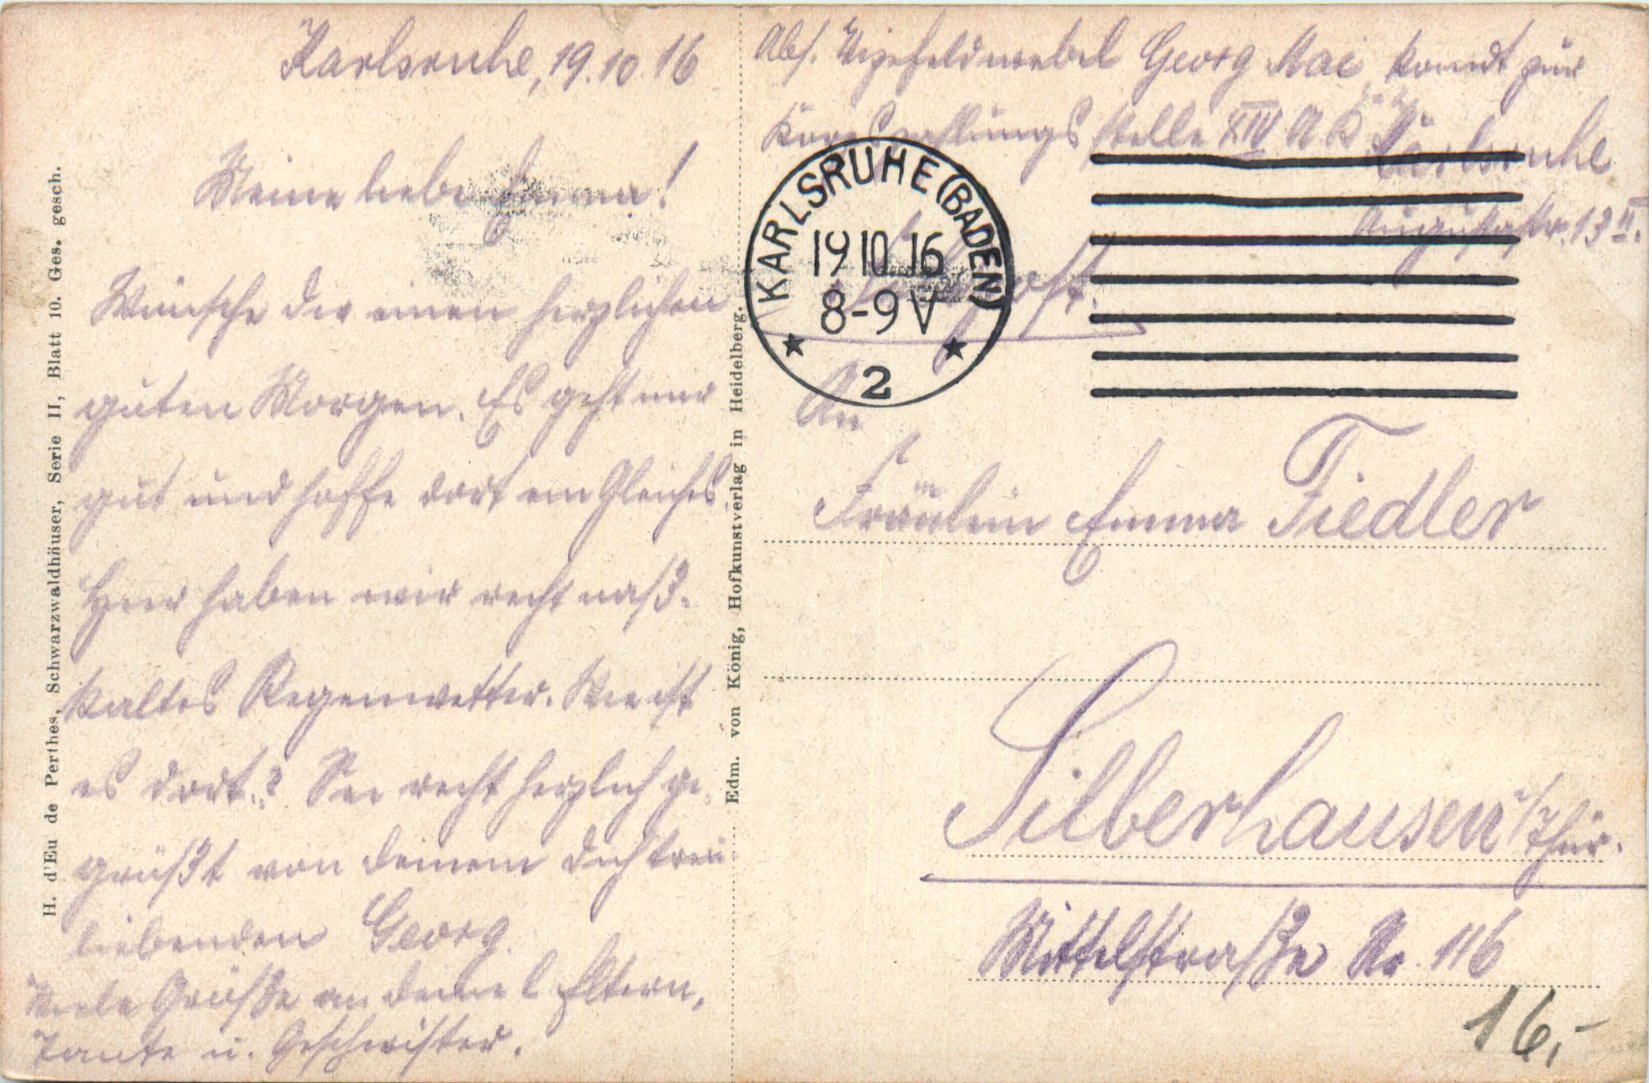 Karlsruhe, 19.10.16
Meine liebe Emma!
Wünsche dir einen herzlichen
guten Morgen. Es geht mir
gut und hoffe dort ein Gleiches
Hier haben wir recht naß-
kaltes Regenwetter. Wie ist
es dort.? Sei recht herzlich ge-
grüßt von deinem dich treu-
liebenden Georg.
Viele Grüße an deine l. Eltern,
Tante u. Geschwister.
H. d'Eu de Perthes, Schwarzwaldhäuser, Serie II, Blatt 10. Ges. gesch.
Edm. von König, Hofkunstverlag in Heidelberg.
Abs. Vizefeldwebel Georg Mai komdt zur
Korpszahlungsstelle XIV A K Karlsruhe
Augustastr. 13 II.
KARLSRUHE (BADEN)
19 10 16
8-9 V
2
An
Fräulein Emma Fiedler
Silberhausen i/Thür.
Mittelstraße Nr. 116
16,-